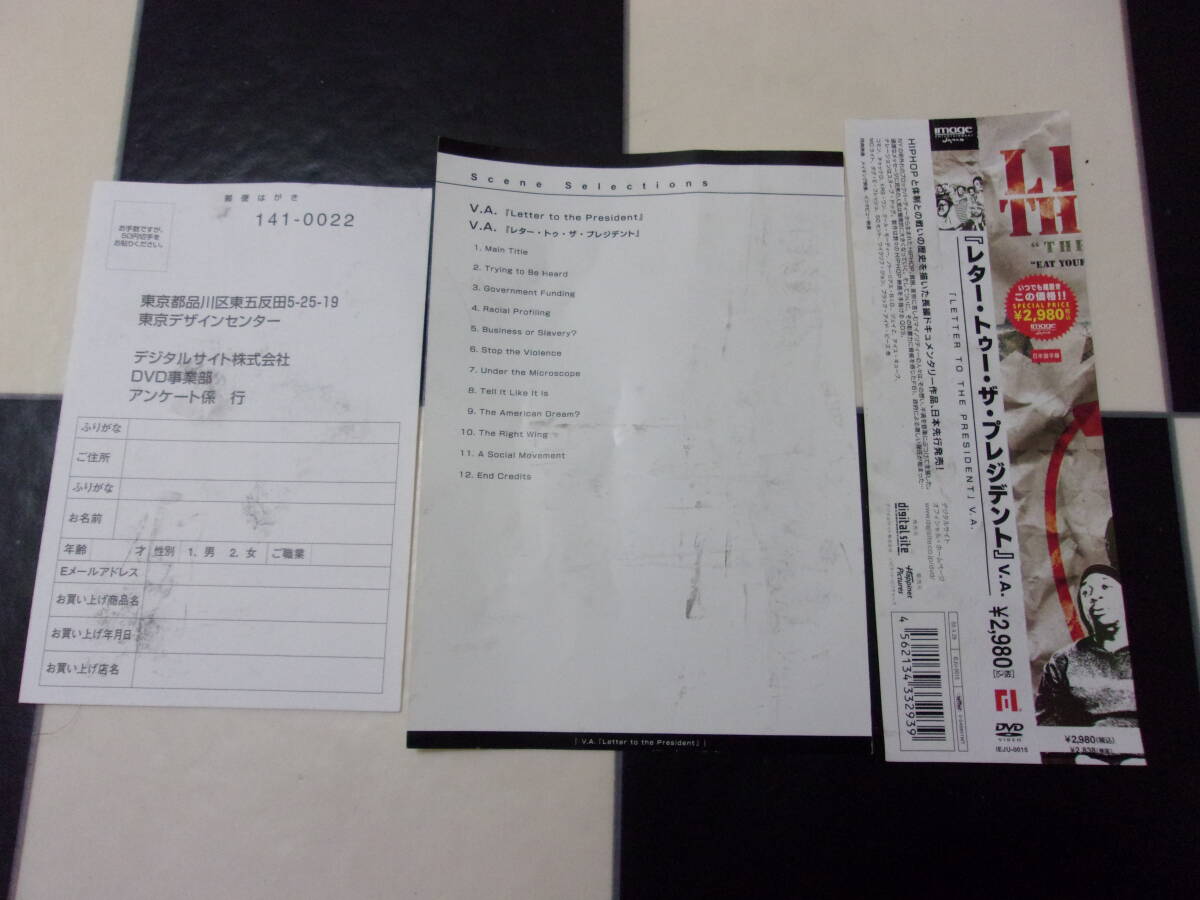 郵便はがき
141-0022
お手数ですが、
50円切手を
お貼りください。
東京都品川区東五反田5-25-19
東京デザインセンター
デジタルサイト株式会社
DVD事業部
アンケート係 行
ふりがな
ご住所
ふりがな
お名前
年齢 才 性別 1. 男 2. 女 ご職業
Eメールアドレス
お買い上げ商品名
お買い上げ年月日
お買い上げ店名
Scene Selections
V.A. 『Letter to the President』
V.A. 『レター・トゥ・ザ・プレジデント』
1. Main Title
2. Trying to Be Heard
3. Government Funding
4. Racial Profiling
5. Business or Slavery?
6. Stop the Violence
7. Under the Microscope
8. Tell It Like It Is
9. The American Dream?
10. The Right Wing
11. A Social Movement
12. End Credits
| V.A.『Letter to the President』 |
image
ENTERTAINMENT
Japan
LE
TH
"THE
"EAT YOUR
いつでもお届き
この価格!!
SPECIAL PRICE
¥2,980
image
日本語字幕
『レター・トゥー・ザ・プレジデント』V.A.
¥2,980
『LETTER TO THE PRESIDENT』 V.A.
HIPHOPと体制との戦いの歴史を描いた長編ドキュメンタリー作品、日本先行発売!
デジタルサイト
オフィシャル・ホームページ
digital site
Happinet
Pictures
4 562134 332939
DVD
VIDEO
IEJU-0015
¥2,980(税込)
¥2,838(税抜)